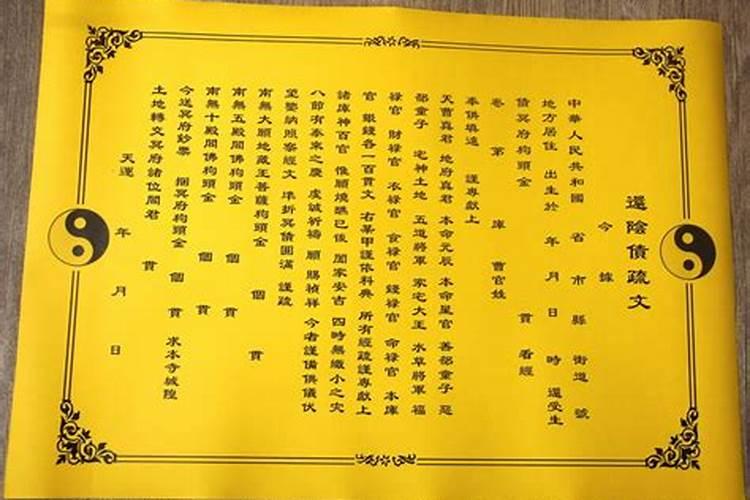 還陰債疏文
今據
中華人民共和國 省 市 縣 街道 號
地方居住 出生於 年 月 日 時 還受生
債冥府狗頭金 貫 看經
卷 第 庫 曹官姓
奉供填還 謹專獻上
天曹真君 地府真君 本命元辰 本命星官 善部童子 惡
部童子 宅神土地 五道將軍 家宅大王 水草將軍 福
祿官 財祿官 衣祿官 食祿官 錢祿官 命祿官 本庫
官 銀錢各一百貫文 右某甲謹依科典 所有經疏謹專獻上
諸庫神百官 惟願燒醮已後 閤家安吉 四時無纖小之灾
八節有泰來之慶 虔誠祈禱 願賜禎祥 今者謹備俱儀伏
望鑒納照察經文 準折冥債圓滿 謹疏
南無大願地藏王菩薩狗頭金 個 貫
南無五殿閻佛狗頭金 個 貫
南無十殿閻佛狗頭金 個 貫
今送冥府鈔票 捆冥府狗頭金 個 貫 求本寺城隍
土地轉交冥府諸位閻君 貫
天運 年 月 日